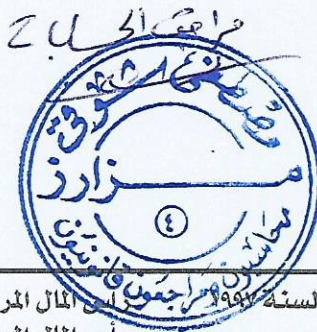 مراقب الحسابات
مصطفى شوقى
مـــزارز
٤
محاسبون ومراجعون قانونيون
لسنة ١٩٩٧
رأس المال المر